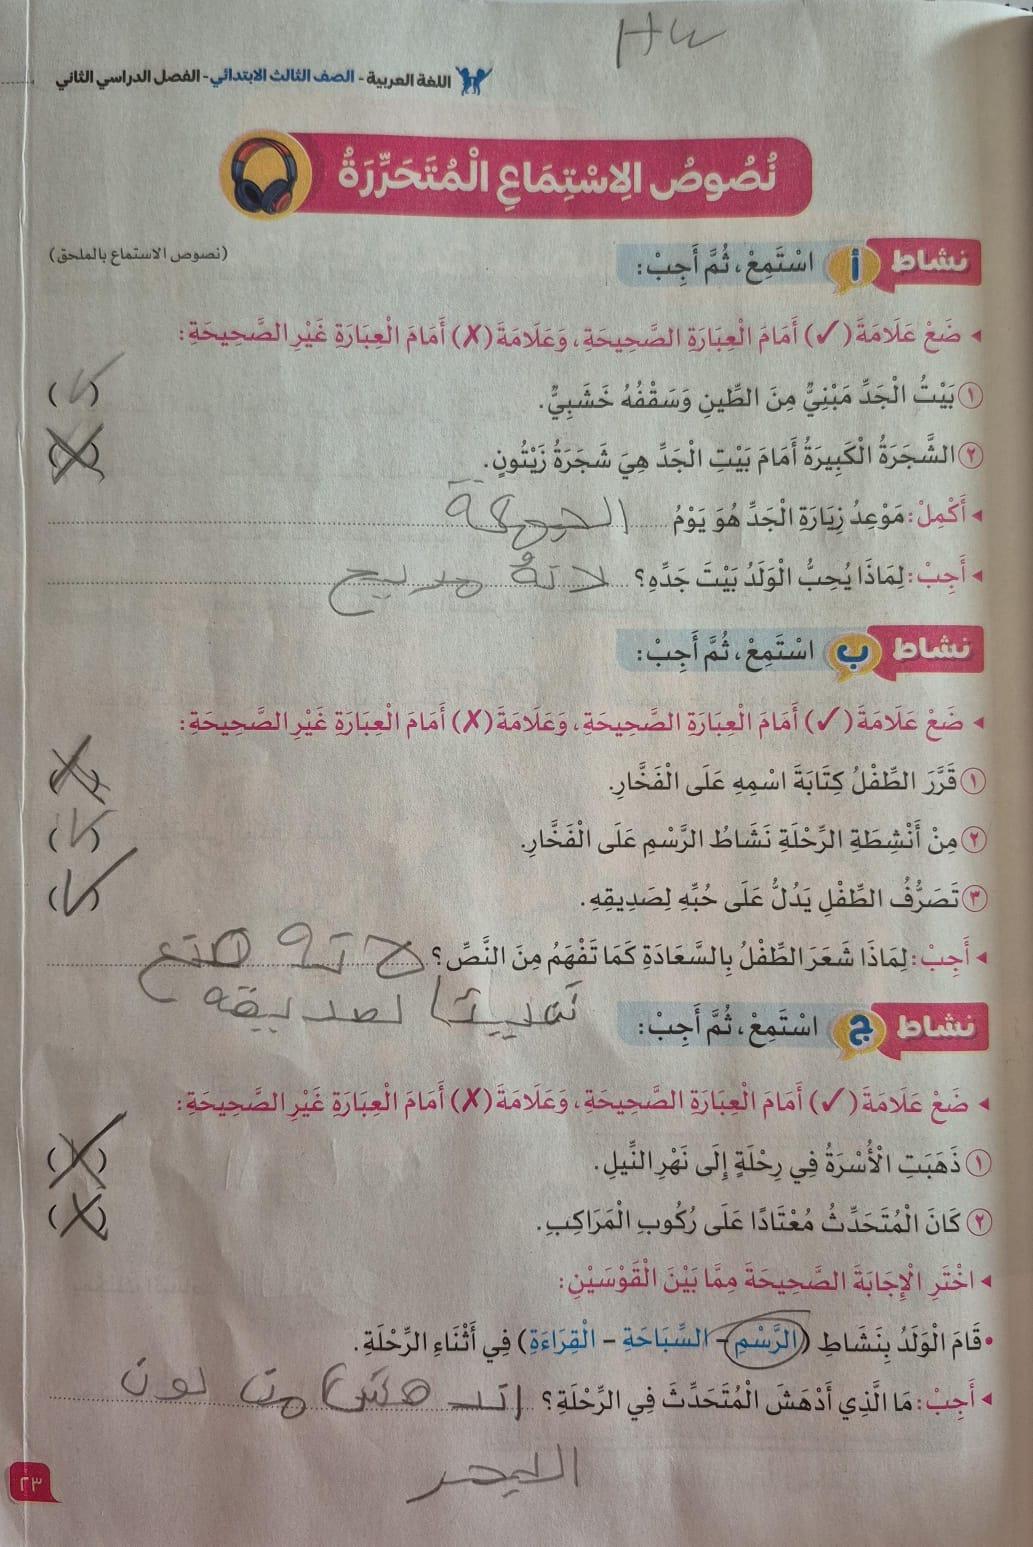 HW
اللغة العربية - الصف الثالث الابتدائي - الفصل الدراسي الثاني
نُصُوصُ الِاسْتِمَاعِ الْمُتَحَرِّرَةُ
نشاط أ اسْتَمِعْ، ثُمَّ أَجِبْ: (نصوص الاستماع بالملحق)
◂ ضَعْ عَلَامَةَ (✓) أَمَامَ الْعِبَارَةِ الصَّحِيحَةِ، وَعَلَامَةَ (✗) أَمَامَ الْعِبَارَةِ غَيْرِ الصَّحِيحَةِ:
① بَيْتُ الْجَدِّ مَبْنِيٌّ مِنَ الطِّينِ وَسَقْفُهُ خَشَبِيٌّ. (✓)
② الشَّجَرَةُ الْكَبِيرَةُ أَمَامَ بَيْتِ الْجَدِّ هِيَ شَجَرَةُ زَيْتُونٍ. (✗)
◂ أَكْمِلْ: مَوْعِدُ زِيَارَةِ الْجَدِّ هُوَ يَوْمُ
◂ أَجِبْ: لِمَاذَا يُحِبُّ الْوَلَدُ بَيْتَ جَدِّهِ؟
نشاط ب اسْتَمِعْ، ثُمَّ أَجِبْ:
◂ ضَعْ عَلَامَةَ (✓) أَمَامَ الْعِبَارَةِ الصَّحِيحَةِ، وَعَلَامَةَ (✗) أَمَامَ الْعِبَارَةِ غَيْرِ الصَّحِيحَةِ:
① قَرَّرَ الطِّفْلُ كِتَابَةَ اسْمِهِ عَلَى الْفَخَّارِ. (✗)
② مِنْ أَنْشِطَةِ الرِّحْلَةِ نَشَاطُ الرَّسْمِ عَلَى الْفَخَّارِ. (✓)
③ تَصَرُّفُ الطِّفْلِ يَدُلُّ عَلَى حُبِّهِ لِصَدِيقِهِ. (✓)
◂ أَجِبْ: لِمَاذَا شَعَرَ الطِّفْلُ بِالسَّعَادَةِ كَمَا تَفْهَمُ مِنَ النَّصِّ؟ صنع
لصديقه
نشاط ج اسْتَمِعْ، ثُمَّ أَجِبْ:
◂ ضَعْ عَلَامَةَ (✓) أَمَامَ الْعِبَارَةِ الصَّحِيحَةِ، وَعَلَامَةَ (✗) أَمَامَ الْعِبَارَةِ غَيْرِ الصَّحِيحَةِ:
① ذَهَبَتِ الْأُسْرَةُ فِي رِحْلَةٍ إِلَى نَهْرِ النِّيلِ. (✗)
② كَانَ الْمُتَحَدِّثُ مُعْتَادًا عَلَى رُكُوبِ الْمَرَاكِبِ. (✗)
◂ اخْتَرِ الْإِجَابَةَ الصَّحِيحَةَ مِمَّا بَيْنَ الْقَوْسَيْنِ:
• قَامَ الْوَلَدُ بِنَشَاطِ (الرَّسْمِ - السِّبَاحَةِ - الْقِرَاءَةِ) فِي أَثْنَاءِ الرِّحْلَةِ.
◂ أَجِبْ: مَا الَّذِي أَدْهَشَ الْمُتَحَدِّثَ فِي الرِّحْلَةِ؟ من لون
البحر
٢٣